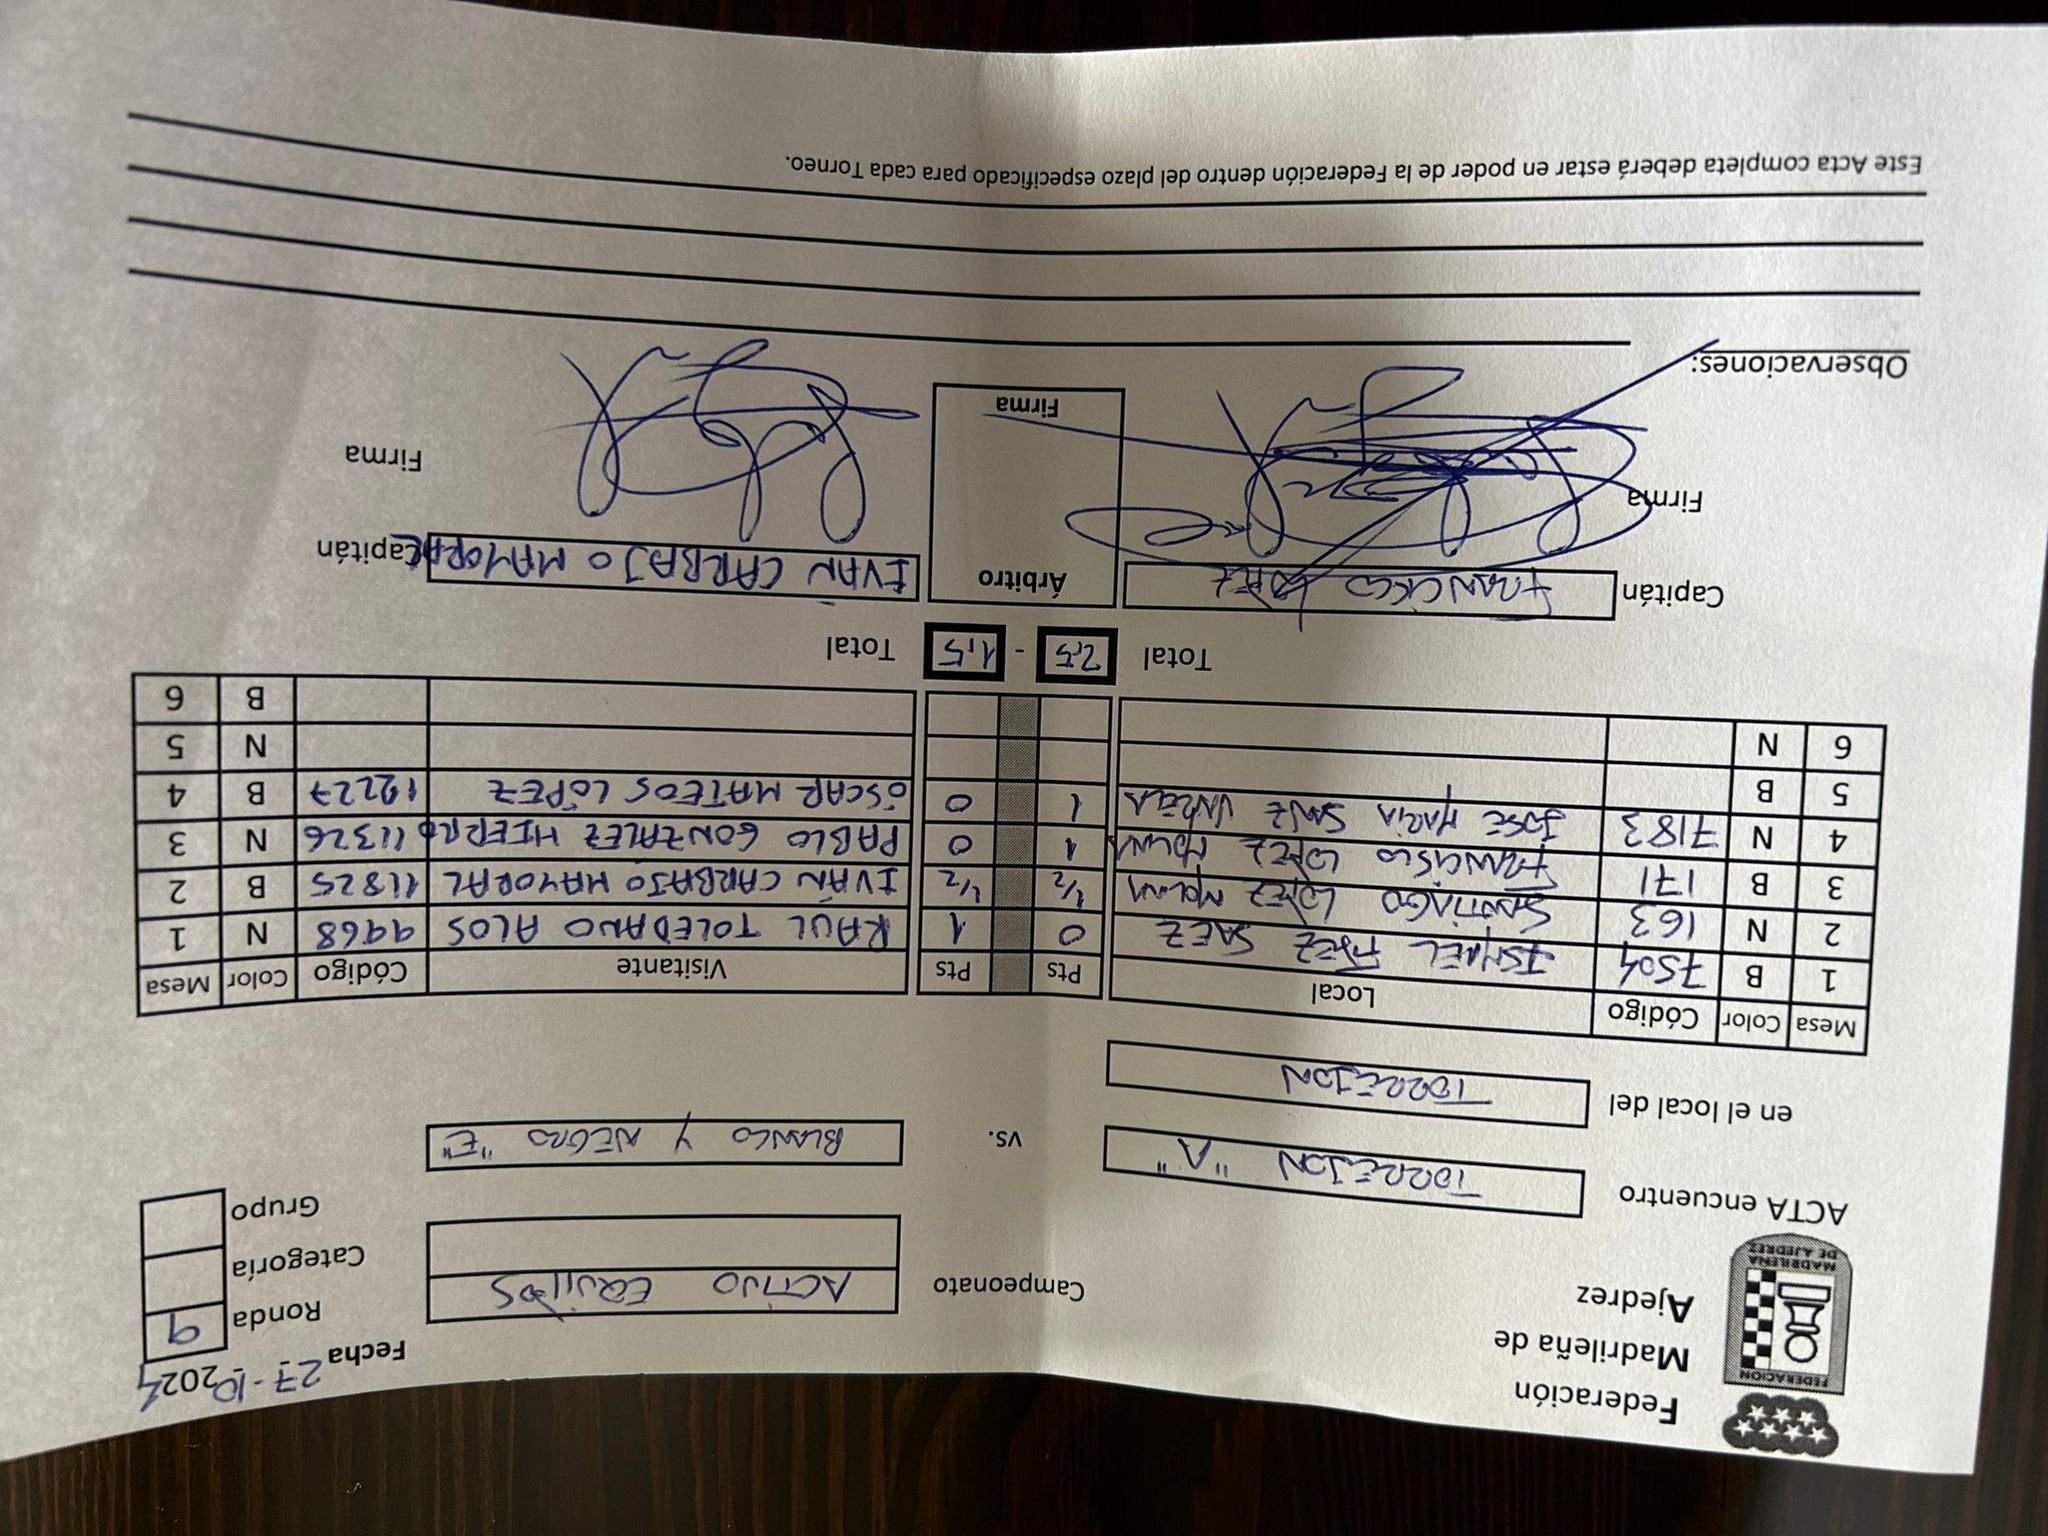 FEDERACION
MADRILEÑA
DE AJEDREZ
Federación
Madrileña de
Ajedrez
Fecha 27-10-2024
Ronda 9
Campeonato ACTIVO EQUIPOS
Categoría
Grupo
ACTA encuentro TORREJON "A" vs. BLANCO Y NEGRO "E"
en el local del TORREJON
Mesa Color Código Local Pts Pts Visitante Código Color Mesa
1 B 7504 ISMAEL FÍJEZ SAEZ 0 1 RAUL TOLEDANO ALOS 9968 N 1
2 N 163 SANTIAGO LÓPEZ MOLINA 1/2 1/2 IVÁN CARBAJO MAYORAL 11825 B 2
3 B 171 FRANCISCO LÓPEZ MOLINA 1 0 PABLO GONZÁLEZ HIERRO 11326 N 3
4 N 7183 JOSE MARIA SANZ VARELA 1 0 ÓSCAR MATEOS LÓPEZ 12227 B 4
5 B N 5
6 N B 6
Total 2,5 - 1,5 Total
Capitán FRANCISCO LÓPEZ Árbitro IVÁN CARBAJO MAYORAL Capitán
Firma Firma Firma
Observaciones:
Este Acta completa deberá estar en poder de la Federación dentro del plazo especificado para cada Torneo.